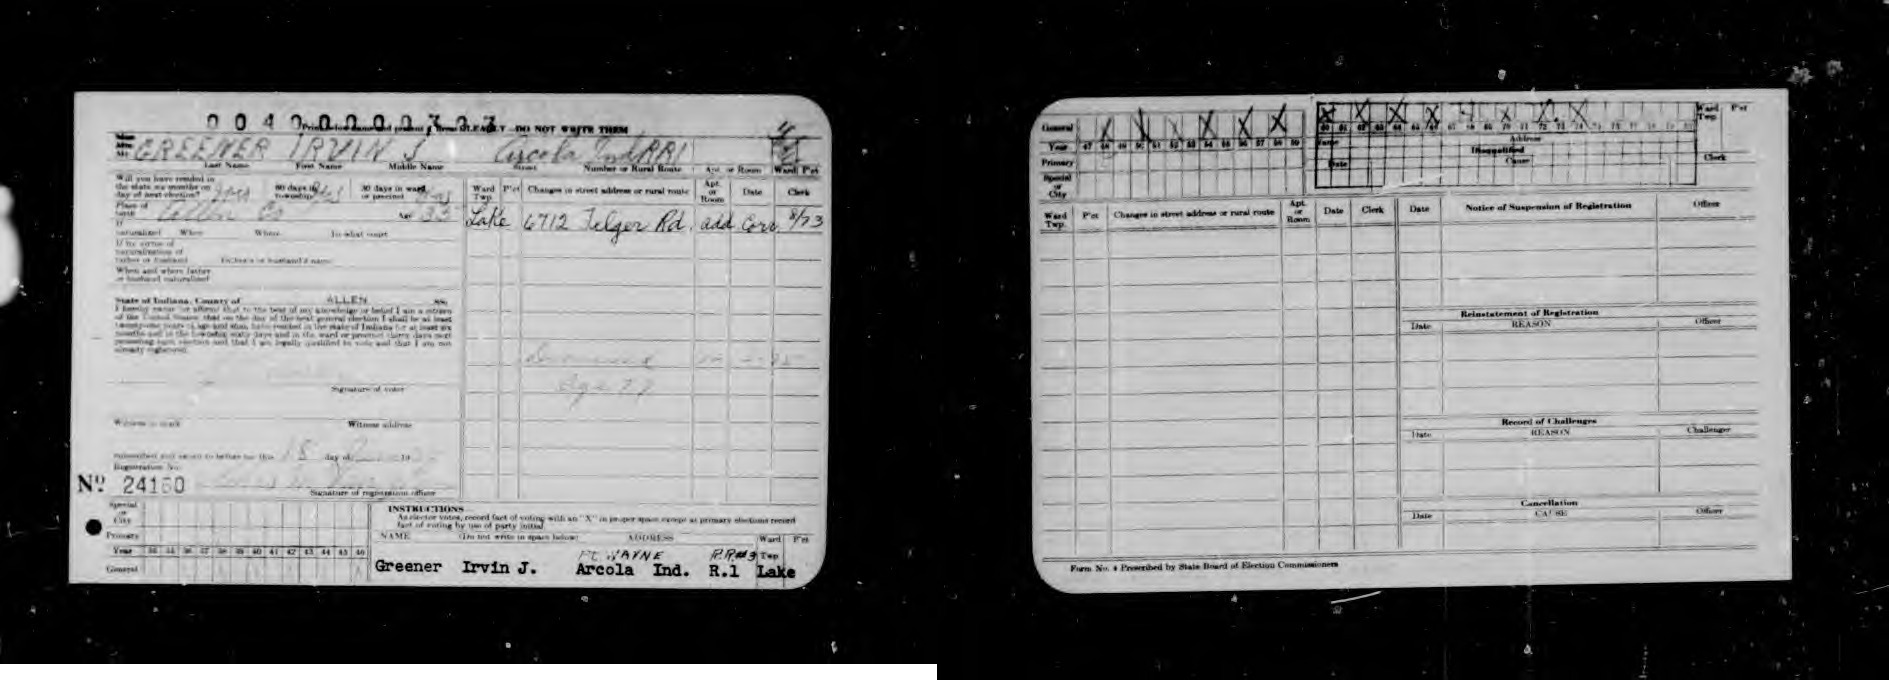 0 0 4 0 0 0 0 0 3 2 3
DO NOT WRITE THEM
GREENER IRVIN J Arcola Ind RR1
Last Name First Name Middle Name Street Number or Rural Route Apt. or Room Ward P'ct
Will you have resided in
the state six months on
day of next election? yes 60 days in township yes 30 days in ward or precinct yes
Place of birth Allen Co Age 33
If naturalized When Where In what court
If by virtue of
naturalization of
father or husband Father's or husband's name
When and where father
or husband naturalized
State of Indiana, County of ALLEN
I hereby swear or affirm that to the best of my knowledge or belief I am a citizen
of the United States; that on the day of the next general election I shall be at least
twenty-one years of age and shall have resided in the state of Indiana for at least six
months and in the township sixty days and in the ward or precinct thirty days next
preceding such election and that I am legally qualified to vote and that I am not
already registered.
Signature of voter
Witness to mark Witness address
Subscribed and sworn to before me this 18 day of 19
Registration No.
No 24160
Signature of registration officer
Ward Twp. P'ct Changes in street address or rural route Apt. or Room Date Clerk
Lake 6712 Felger Rd. add Corr. 8/73
Age 77
Special or City
Primary
Year 34 35 36 37 38 39 40 41 42 43 44 45 46
General X
INSTRUCTIONS
As elector votes, record fact of voting with an "X" in proper space except at primary elections record
fact of voting by use of party initial.
NAME (Do not write in space below) ADDRESS Ward Twp P'ct
FT WAYNE R.R.#3
Greener Irvin J. Arcola Ind. R.1 Lake
General X X X X X X
Year 47 48 49 50 51 52 53 54 55 56 57 58 59
Primary
Special or City
X X X X
60 61 62 63 64 65 66 67 68 69 70 71 72 73 74 75 76 77 78 79 80
Ward Twp. P'ct
Name Address
Disqualified
Date Cause Clerk
Ward Twp. P'ct Changes in street address or rural route Apt. or Room Date Clerk
Date Notice of Suspension of Registration Officer
Reinstatement of Registration
Date REASON Officer
Record of Challenges
Date REASON Challenger
Cancellation
Date CAUSE Officer
Form No. 4 Prescribed by State Board of Election Commissioners